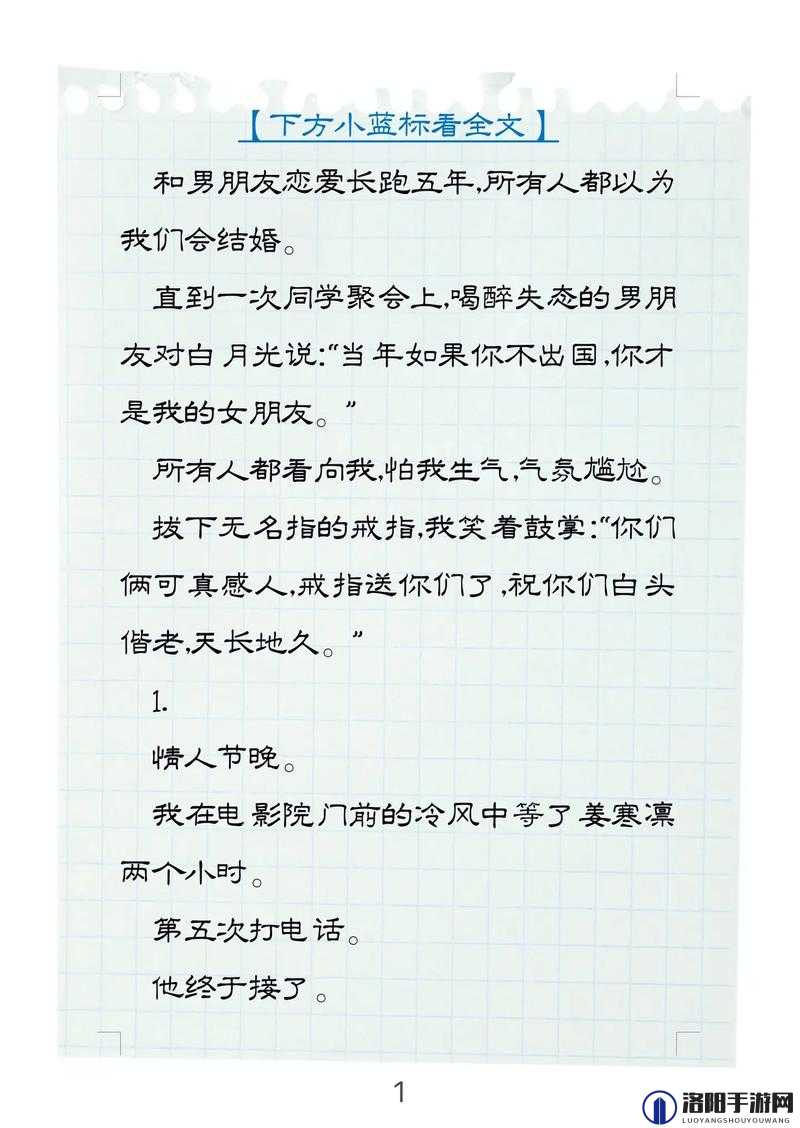 【下方小蓝标看全文】
和男朋友恋爱长跑五年,所有人都以为
我们会结婚。
直到一次同学聚会上,喝醉失态的男朋
友对白月光说:“当年如果你不出国,你才
是我的女朋友。”
所有人都看向我,怕我生气,气氛尴尬。
拔下无名指的戒指,我笑着鼓掌:“你们
俩可真感人,戒指送你们了,祝你们白头
偕老,天长地久。”
1.
情人节晚。
我在电影院门前的冷风中等了姜寒凛
两个小时。
第五次打电话。
他终于接了。
1
洛阳手游网
LUOYANGSHOUYOUWANG